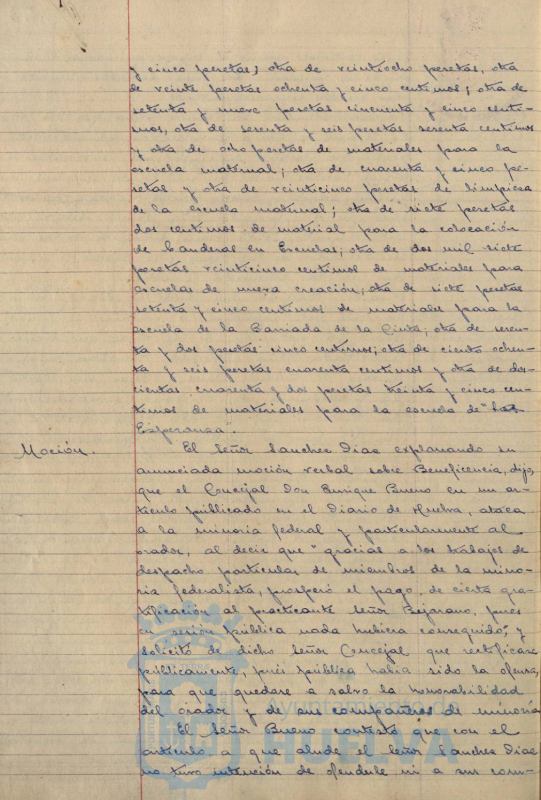 y cinco pesetas; otra de veintiocho pesetas, otra
de veinte pesetas ochenta y cinco centimos; otra de
setenta y nueve pesetas cincuenta y cinco centi-
mos, otra de sesenta y seis pesetas sesenta centimos
y otra de ocho pesetas de materiales para la
escuela maternal; otra de cuarenta y cinco pe-
setas y otra de veinticinco pesetas de limpieza
de la escuela maternal; otra de siete pesetas
dos centimos de material para la colocación
de banderas en Escuelas; otra de dos mil siete
pesetas veinticinco centimos de materiales para
escuelas de nueva creación, otra de siete pesetas
setenta y cinco centimos de materiales para la
escuela de la Barriada de la Cinta; otra de sesen-
ta y dos pesetas cinco centimos; otra de ciento ochen-
ta y seis pesetas cuarenta centimos y otra de dos-
cientas cuarenta y dos pesetas treinta y cinco cen-
timos de materiales para la escuela de "la
Esperanza".
Moción. El Señor Sanchez Diaz explanando su
anunciada moción verbal sobre Beneficencia, dijo,
que el Concejal Don Enrique Bueno en un ar-
ticulo publicado en el Diario de Huelva, ataca
a la minoria federal y particularmente al
orador, al decir que "gracias a los trabajos de
despacho particular de miembros de la mino-
ria federalista, prosperó el pago de cierta gra-
tificación al practicante Señor Bejarano, pues
en sesión pública nada hubiera conseguido", y
solicitó de dicho Señor Concejal que rectificara
públicamente, pues pública habia sido la ofensa,
para que quedare a salvo la honorabilidad
del orador y de sus compañeros de minoria
El Señor Bueno contestó que con el
articulo a que alude el Señor Sanchez Diaz
no tuvo intención de ofenderle ni a sus com-
Ayuntamiento de
HUELVA